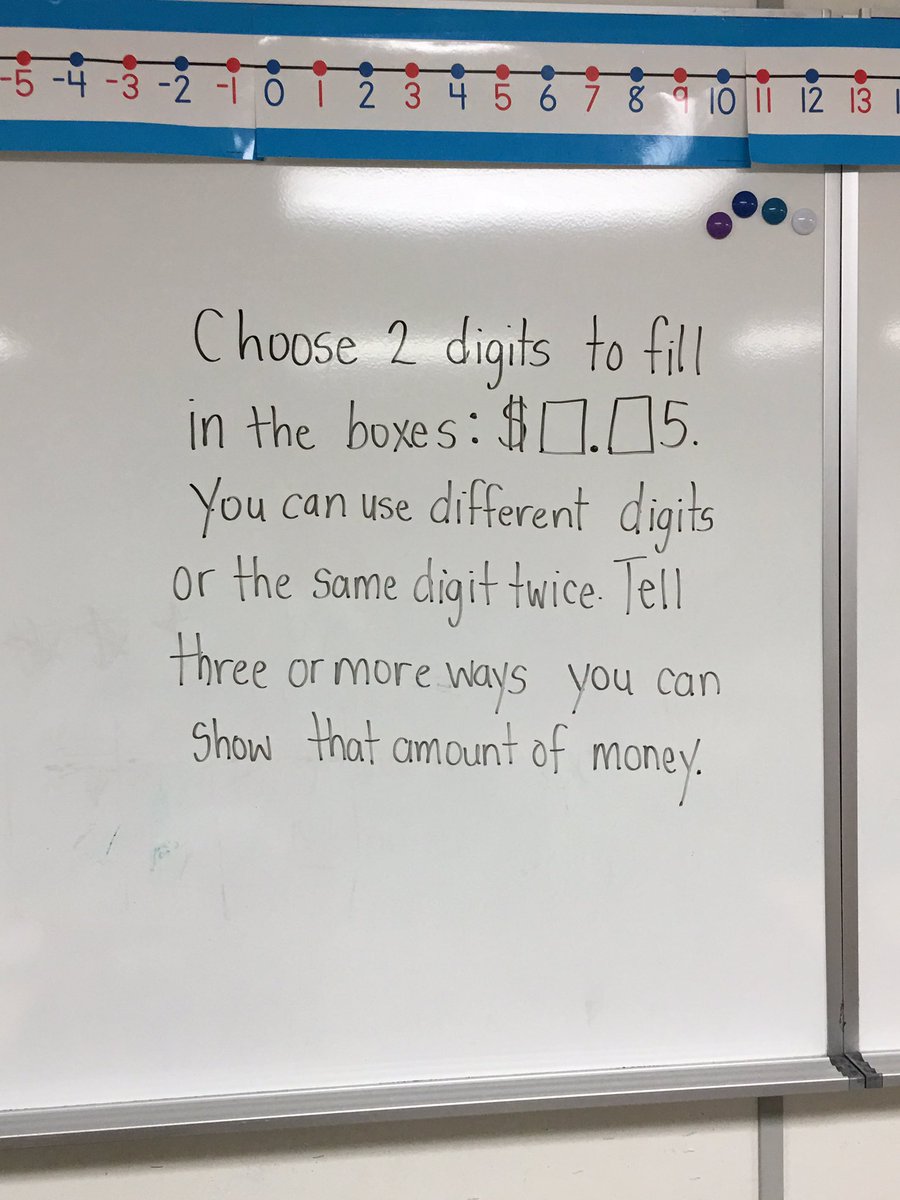 -5 -4 -3 -2 -1 0 1 2 3 4 5 6 7 8 9 10 11 12 13
Choose 2 digits to fill
in the boxes: $□.□5.
You can use different digits
or the same digit twice. Tell
three or more ways you can
show that amount of money.